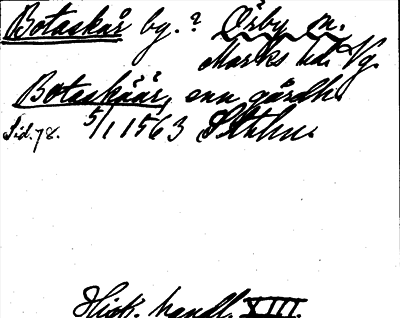 Botaskär bg.? Örby sn.
Marks hd. Vg.
Botaskäär, enn gårdh.
Sid. 78. 5/1 1563 Sthm.
Hist. handl. XIII.